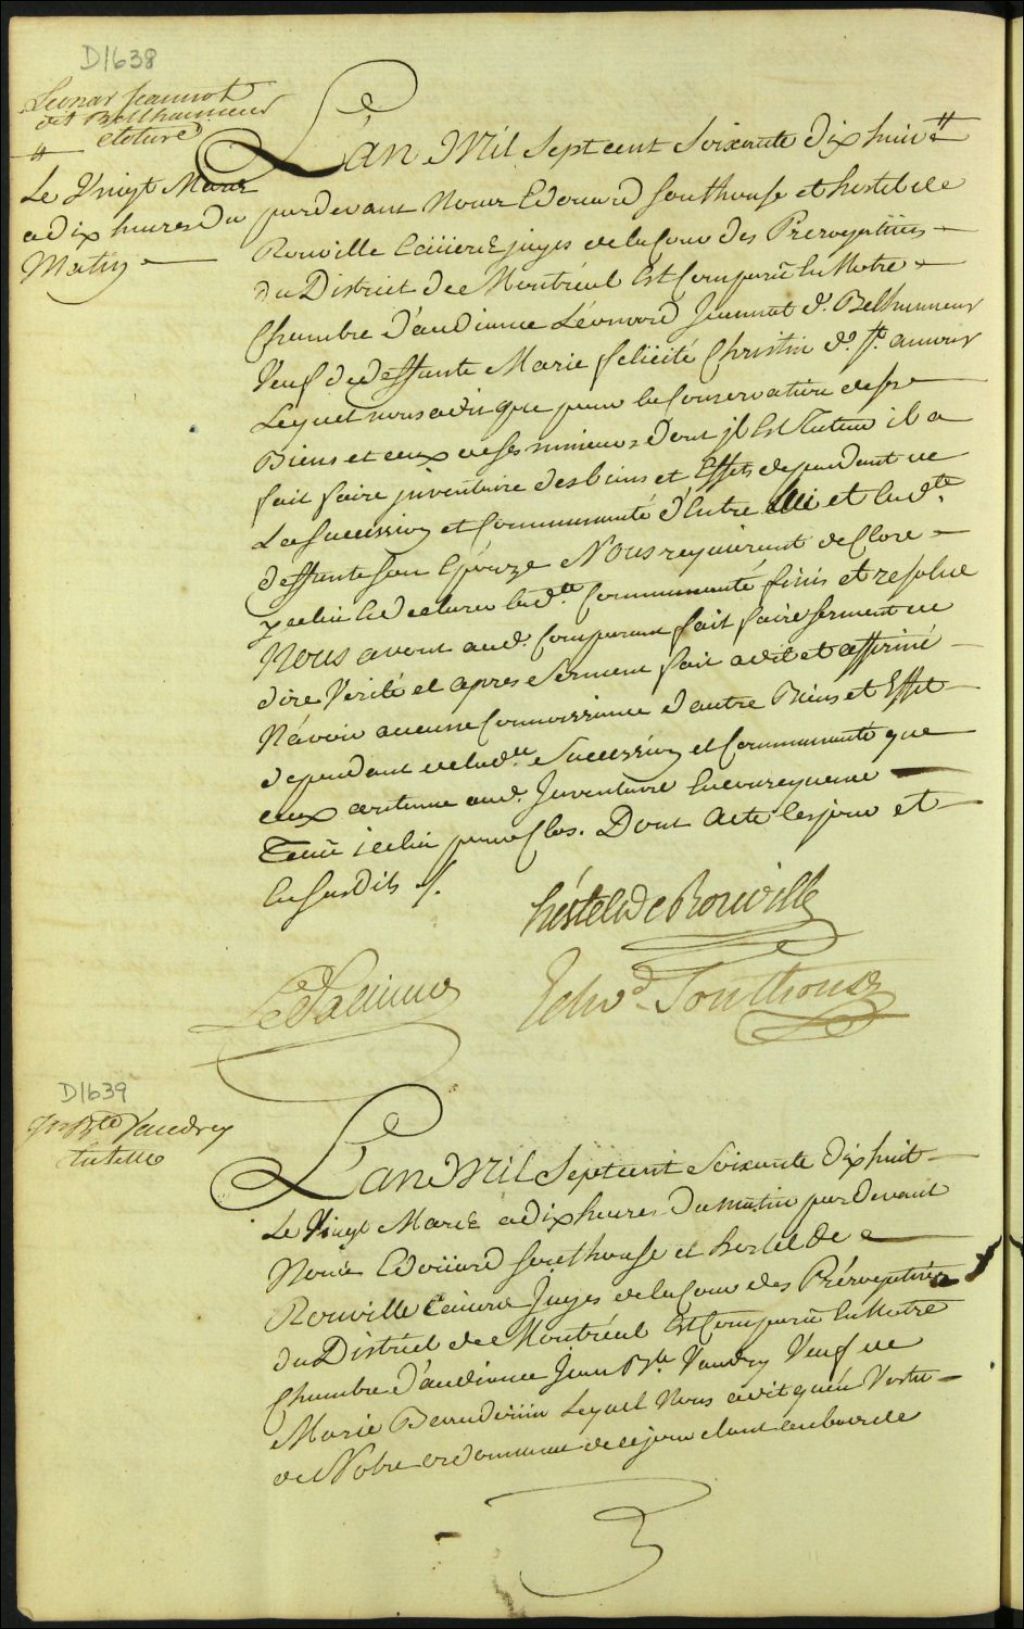 D1638
Leonar Jeannot
dit Bellhumeur
cloture
L'an Mil Sept cent Soixante dix huit #
# Le Vingt Mars
a dix heures du
Matin —
pardevant Nous Edouard Southouse et hertel de
Rouville Ecüiers juges de la Cour des Prerogatives —
du District de Montréal Est Comparü En Notre —
Chambre d'audiance Léonard Jeannot d.t Bellhumeur
Veuf de deffunte Marie felicité Christin d.t St. amour
Lequel nous a dit que pour la Conservation de ses —
Biens et ceux de ses mineurs dont jl Est Tuteur il a
fait faire jnventaire des biens et Effets dependant de
La Succession et Communauté d'Entre lui et lad.te
deffunte son Epouze Nous requerant de Clore —
jcelui Et declarer lad.te Communauté finis et resolue
Nous avons aud. Comparant fait faire serment de
dire Verité et apres Serment fait a dit et affirmé —
N'avoir aucune Connoissance d'autre Biens et Effet —
dependant de lad.te Succession et Communauté que
ceux contenue aud. Jnventaire En consequence —
Tenü jcelui pour Clos. Dont Acte les jour et —
an susdits ./.
hertel de Rouville
LePallieur
Edwd. Southouse
D1639
Jn Bte Vaudry
tutelle
L'an Mil Sept cent Soixante dix huit —
Le Vingt Mars a dix heures du matin pardevant
Nous Edoüard Southouse et hertel de —
Rouville Ecüiers Juges de la Cour des Prérogatives
du District de Montréal Est Comparü En Notre
Chambre d'audiance Jean Bte. Vaudry Veuf de
Marie Beaudoüin Lequel Nous a dit qu'en Vertu —
de Notre ordonnance de ce jour étant au bas de